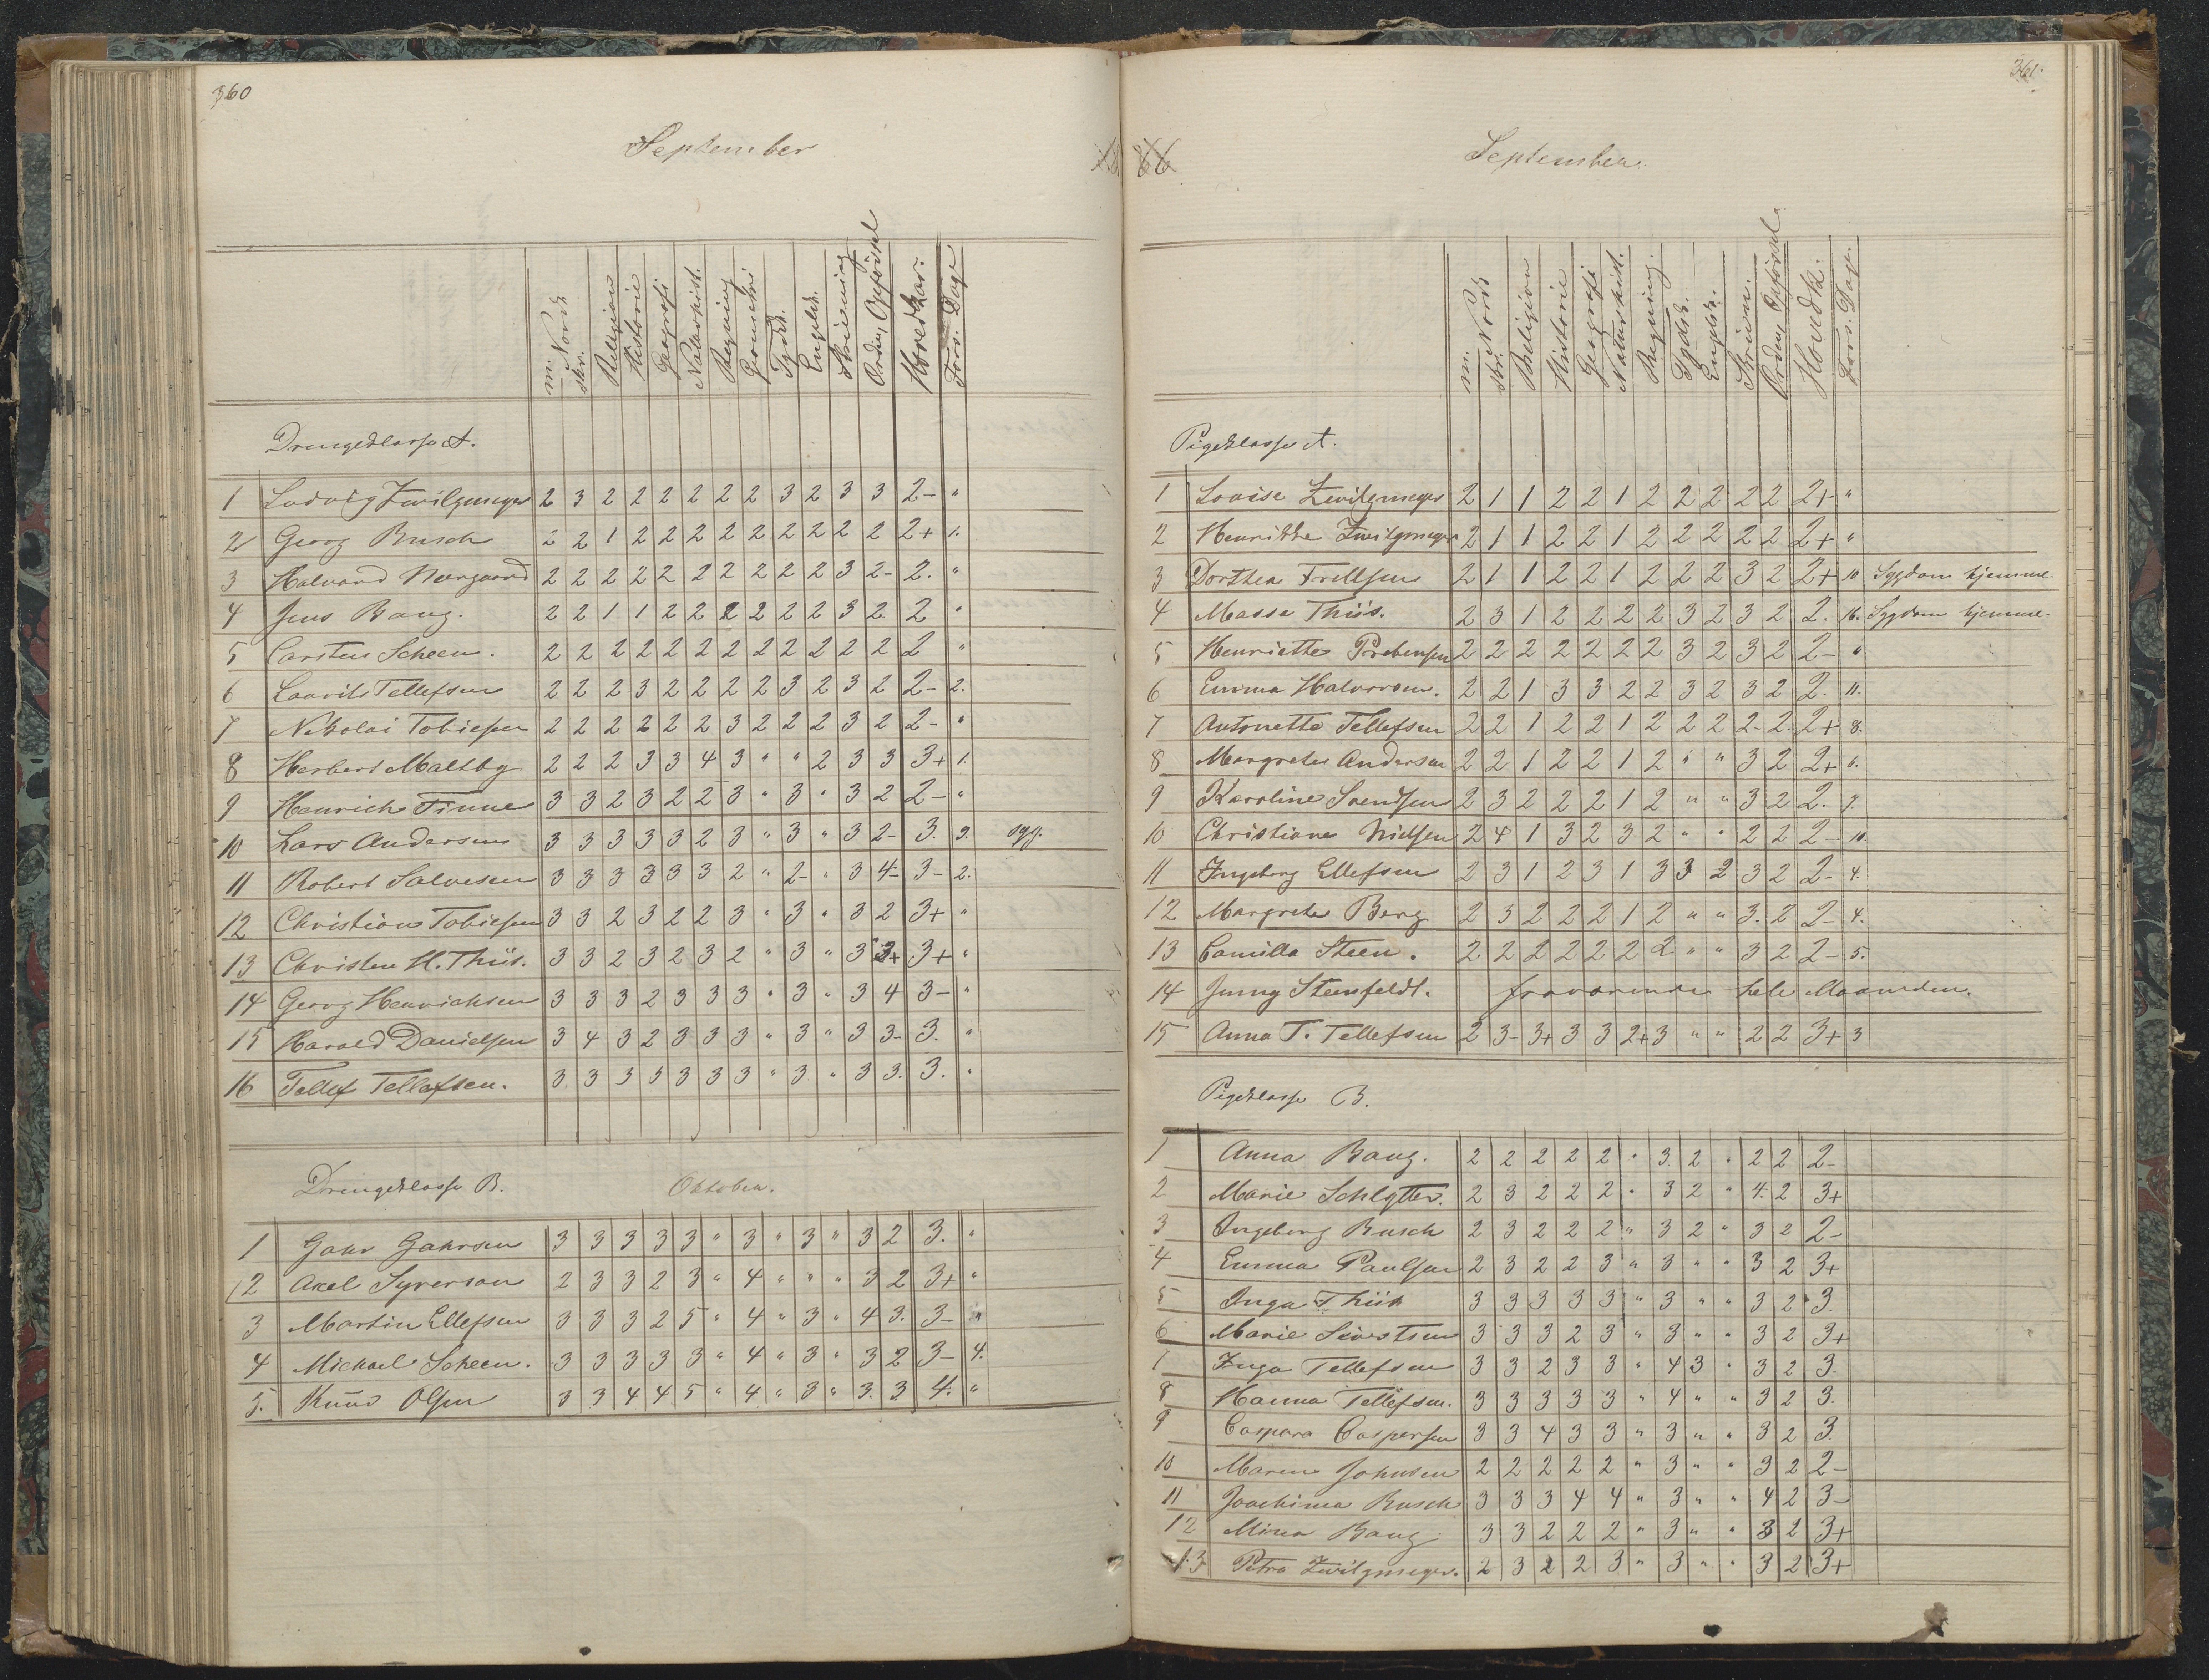 360
September
m. Norsk
skr.
Religion
Historie
Geografi
Naturhist.
Regning
Geometri
Tydsk.
Engelsk.
Skrivning
Orden, Opførsel
Hovedkar:
Fors. Dage
Drengeklasse A.
1 Ludvig Zwilgmeyer 2 3 2 2 2 2 2 2 3 2 3 3 2- "
2 Georg Busch 2 2 1 2 2 2 2 2 2 2 2 2 2+ 1.
3 Halvard Neergaard 2 2 2 2 2 2 2 2 2 2 3 2- 2. "
4 Jens Bang. 2 2 1 1 2 2 2 2 2 2 3 2 2 "
5 Carsten Scheen. 2 2 2 2 2 2 2 2 2 2 2 2 2 "
6 Laurits Tellefsen 2 2 2 3 2 2 2 2 3 2 3 2 2- 2.
7 Nikolai Tobiesen 2 2 2 2 2 2 3 2 2 2 3 2 2- "
8 Herbert Maltby 2 2 2 3 3 4 3 " " 2 3 3 3+ 1.
9 Henrich Finne 3 3 2 3 2 2 3 " 3 " 3 2 2- "
10 Lars Andersen 3 3 3 3 3 2 3 " 3 " 3 2- 3. 2. syg.
11 Robert Salvesen 3 3 3 3 3 3 2 " 2- " 3 4- 3- 2.
12 Christian Tobiesen 3 3 2 3 2 2 3 " 3 " 3 2 3+ "
13 Christen H. Thiis. 3 3 2 3 2 3 2 " 3 " 3 3+ 3+ "
14 Georg Henrichsen 3 3 3 2 3 3 3 " 3 " 3 4 3- "
15 Harald Danielsen 3 4 3 2 3 3 3 " 3 " 3 3- 3. "
16 Tellef Tellefsen. 3 3 3 3 3 3 3 " 3 " 3 3. 3. "
Drengeklasse B. Oktober.
1 Jahr Jahrsen 3 3 3 3 3 " 3 " 3 " 3 2 3. "
2 Axel Syversen 2 3 3 2 3 " 4 " " " 3 2 3+ "
3 Martin Ellefsen 3 3 3 2 5 " 4 " 3 " 4 3. 3- "
4 Michael Scheen. 3 3 3 3 3 " 4 " 3 " 3 2 3- 4.
5. Knud Olsen 3 3 4 4 5 " 4 " 3 " 3. 3 4. "
361
66
September
m. Norsk
skr.
Religion
Historie
Geografi
Naturhist.
Regning.
Tydsk.
Engelsk.
Skrivn.
Orden, Opførsel
Hovedk.
Fors. Dage.
Pigeklasse A.
1 Louise Zwilgmeyer 2 1 1 2 2 1 2 2 2 2 2 2+ "
2 Henrikke Zwilgmeyer 2 1 1 2 2 1 2 2 2 2 2 2+ "
3 Dorthea Frellsen 2 1 1 2 2 1 2 2 2 3 2 2+ 10 Sygdom hjemme.
4 Massa Thiis. 2 3 1 2 2 2 2 3 2 3 2 2. 16. Sygdom hjemme.
5 Henriette Prebensen 2 2 2 2 2 2 2 3 2 3 2 2- "
6 Emma Halvorsen. 2 2 1 3 3 2 2 3 2 3 2 2. 11.
7 Antonette Tellefsen 2 2 1 2 2 1 2 2 2 2- 2. 2+ 8.
8 Margrethe Andersen 2 2 1 2 2 1 2 " " 3 2 2+ 6.
9 Karoline Svendsen 2 3 2 2 2 1 2 " " 3 2 2. 7.
10 Christiane Nielsen 2 4 1 3 2 3 2 " " 2 2 2- 10.
11 Ingeborg Ellefsen 2 3 1 2 3 1 3 3 2 3 2 2- 4.
12 Margrethe Berg 2 3 2 2 2 1 2 " " 3. 2 2- 4.
13 Camilla Steen. 2 2 2 2 2 2 2 " " 3 2 2- 5.
14 Jenny Steenfeldt. fraværende hele Maaneden.
15 Anna T. Tellefsen 2 3- 3+ 3 3 2+ 3 " " 2 2 3+ 3
Pigeklasse B.
1 Anna Bang. 2 2 2 2 2 " 3 2 " 2 2 2-
2 Marie Schlytter. 2 3 2 2 2 " 3 2 " 4. 2 3+
3 Ingeborg Busch 2 3 2 2 2 " 3 2 " 3 2 2-
4 Emma Paulsen 2 3 2 2 3 " 3 " " 3 2 3+
5 Inga Thiis 3 3 3 3 3 " 3 " " 3 2 3.
6 Marie Sivertsen 3 3 3 2 3 " 3 " " 3 2 3+
7 Inga Tellefsen 3 3 2 3 3 " 4 3 " 3 2 3.
8 Hanna Tellefsen. 3 3 3 3 3 " 4 " " 3 2 3.
9 Caspara Caspersen 3 3 4 3 3 " 3 " " 3 2 3.
10 Maren Johnsen 2 2 2 2 2 " 3 " " 3 2 2-
11 Joachima Busch 3 3 3 4 4 " 3 " " 4 2 3-
12 Mina Bang. 3 3 2 2 2 " 3 " " 3 2 3+
13 Petra Zwilgmeyer. 2 3 2 2 3 " 3 " " 3 2 3+